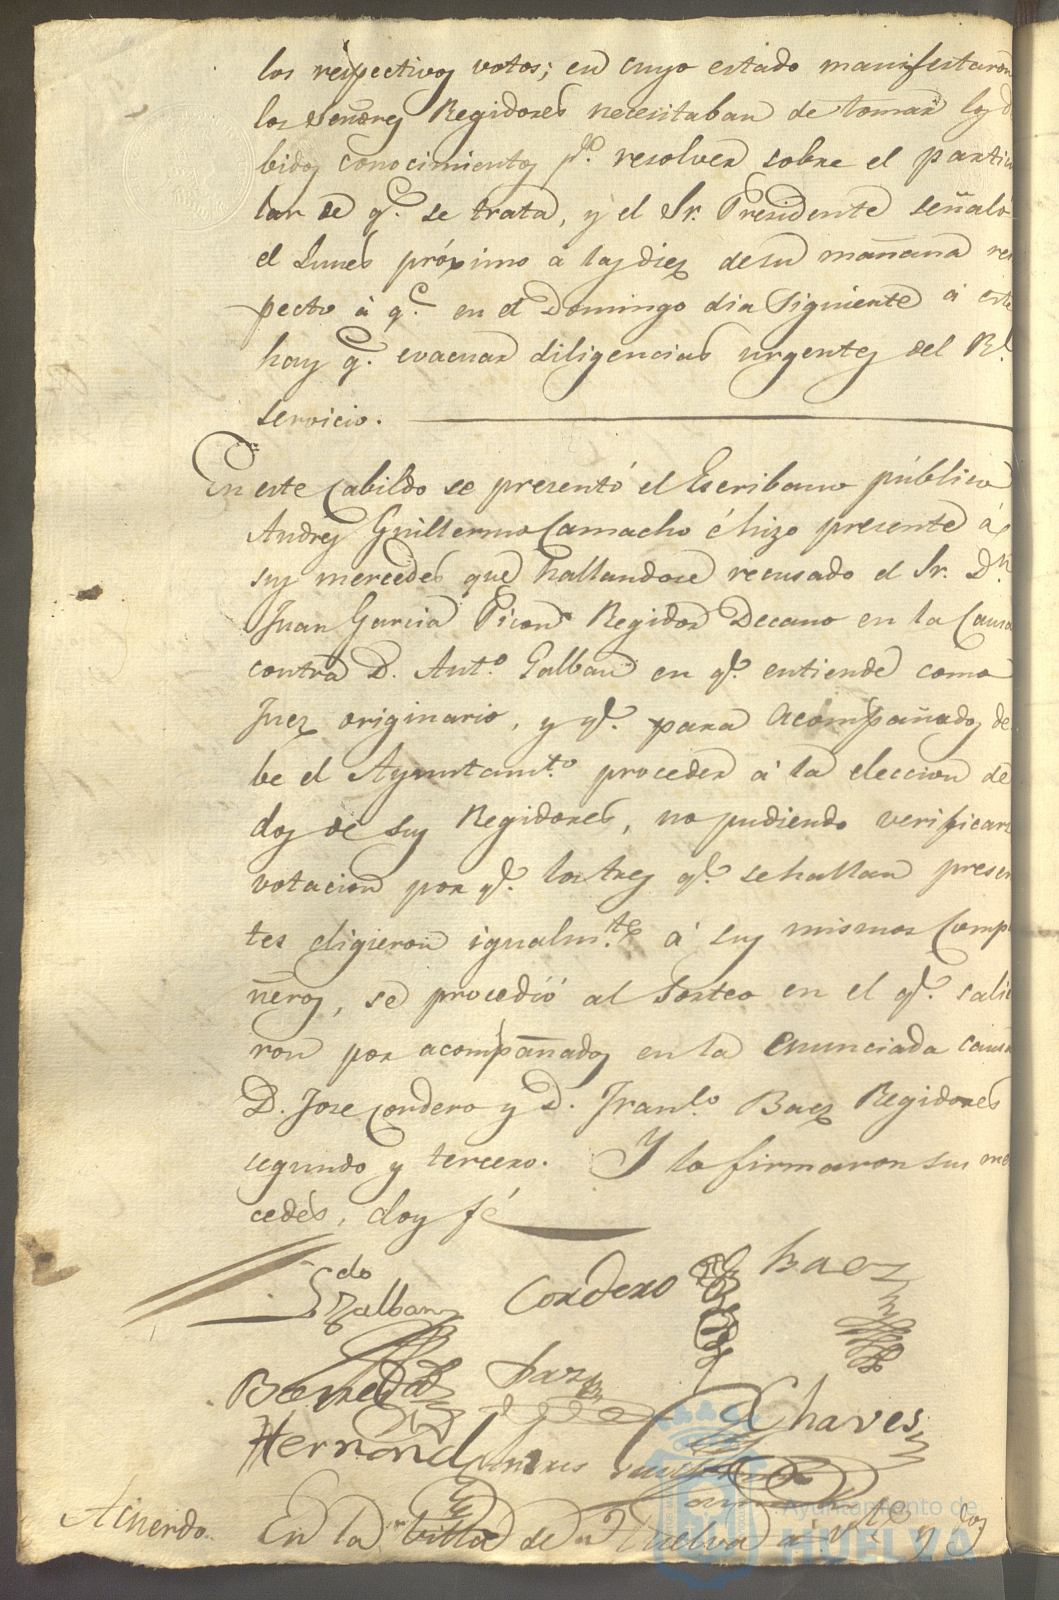 los respectivos votos; en cuyo estado manifestaron
los Señores Regidores necesitaban de tomar los de
bidos conocimientos pa. resolver sobre el particu
lar de q.e se trata, y el Sr. Presidente señaló
el Lunes próximo a las diez de su mañana res
pecto á q.e en el Domingo dia siguiente á este
hay q.e evacuar diligencias urgentes del R.l
servicio.
En este Cabildo se presentó el Escribano público
Andres Guillermo Camacho é hizo presente á
sus mercedes que hallandose recusado el Sr. D.n
Juan Garcia Picon Regidor Decano en la Causa
contra D. Ant.o Galban en q.e entiende como
Juez originario, y q.e para Acompañados de
be el Ayuntam.to proceder á la eleccion de
dos de sus Regidores, no pudiendo verificarse
votacion por q.e los tres q.e se hallan presen
tes eligieron igualm.te á sus mismos Compa
ñeros, se procedió al Sorteo en el q.e salie
ron por acompañados en la enunciada causa
D. Jose Cordero y D. Fran.co Baez Regidores
segundo y tercero. Y lo firmaron sus mer
cedes, doy fé
Galban Cordero Baez
Chaves
Hernand
Acuerdo En la villa de Huelva á vte. y dos
Ayuntamiento de
HUELVA